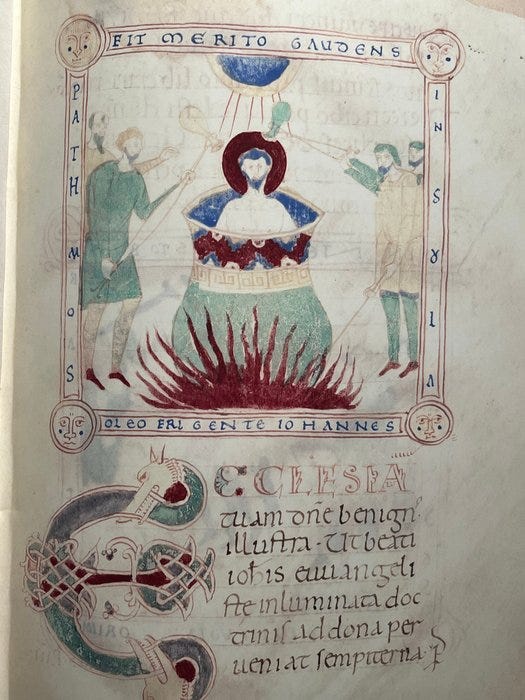 FIT MERITO GAUDENS
PATHMOS
INSVLA
OLEO FRIGENTE IOHANNES
ECCLESIA
tuam dñe benigñ·
illustra· Ut beati
ioħis euuangeli
stę inluminata doc
trinis ad dona per
ueniat sempiterna·